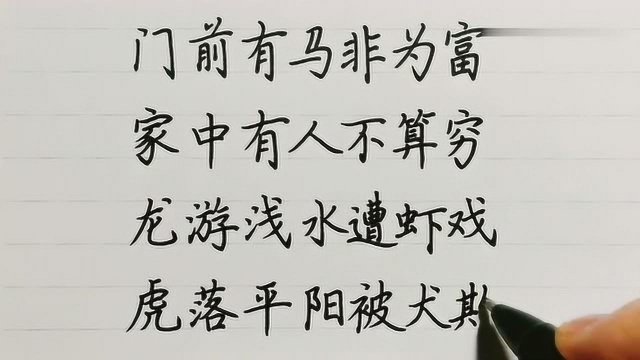 门前有马非为富
家中有人不算穷
龙游浅水遭虾戏
虎落平阳被犬